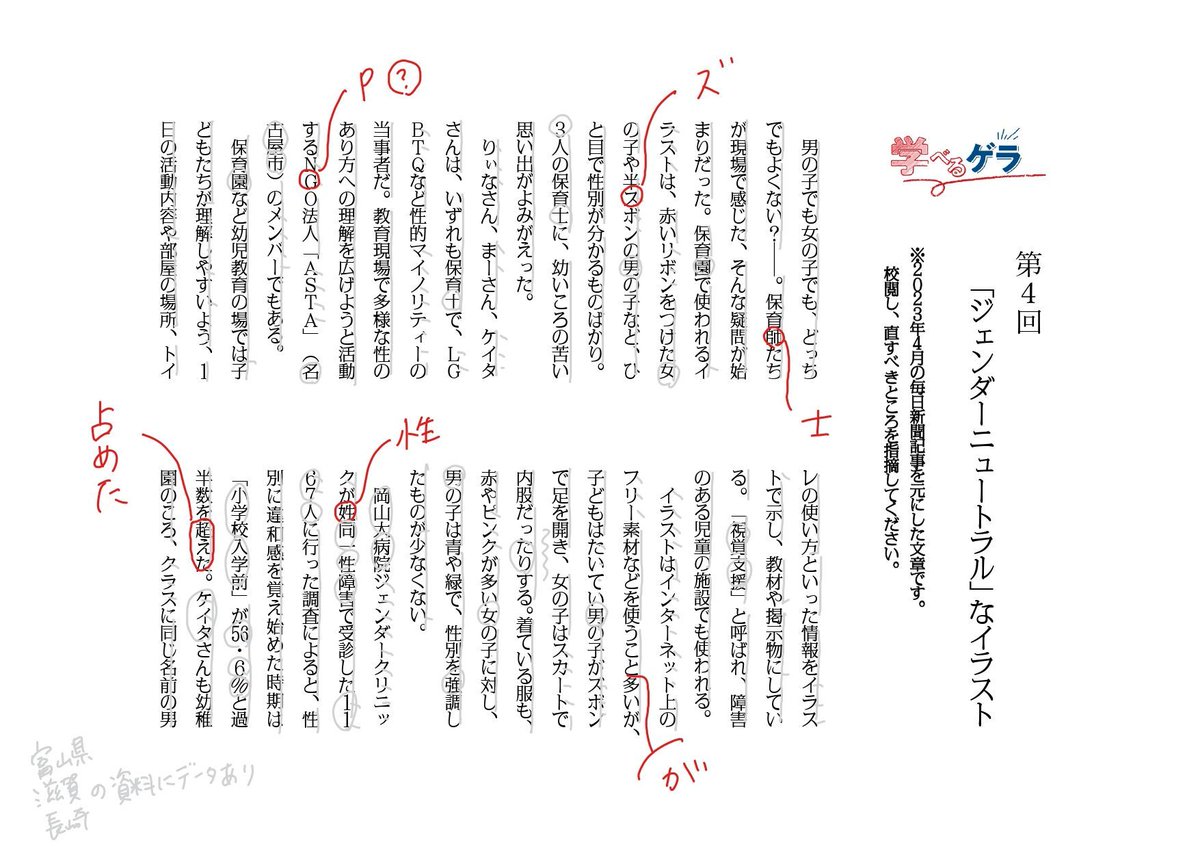 学べるゲラ
第4回
「ジェンダーニュートラル」なイラスト
※2023年4月の毎日新聞記事を元にした文章です。
校閲し、直すべきところを指摘してください。
男の子でも女の子でも、どっち
でもよくない?――。保育師たち
が現場で感じた、そんな疑問が始
まりだった。保育園で使われるイ
ラストは、赤いリボンをつけた女
の子や半スボンの男の子など、ひ
と目で性別が分かるものばかり。
3人の保育士に、幼いころの苦い
思い出がよみがえった。
りぃなさん、まーさん、ケイタ
さんは、いずれも保育士で、LG
BTQなど性的マイノリティーの
当事者だ。教育現場で多様な性の
あり方への理解を広げようと活動
するNGO法人「ASTA」(名
古屋市)のメンバーでもある。
保育園など幼児教育の場では子
どもたちが理解しやすいよう、1
日の活動内容や部屋の場所、トイ
ズ
P?
士
レの使い方といった情報をイラス
トで示し、教材や掲示物にしてい
る。「視覚支援」と呼ばれ、障害
のある児童の施設でも使われる。
イラストはインターネット上の
フリー素材などを使うこと多いが、
子どもはたいてい男の子がズボン
で足を開き、女の子はスカートで
内股だったりする。着ている服も、
赤やピンクが多い女の子に対し、
男の子は青や緑で、性別を強調し
たものが少なくない。
岡山大病院ジェンダークリニッ
クが姓同一性障害で受診した11
67人に行った調査によると、性
別に違和感を覚え始めた時期は
「小学校入学前」が56・6%と過
半数を超えた。ケイタさんも幼稚
園のころ、クラスに同じ名前の男
が
性
占めた
富山県
滋賀の資料にデータあり
長崎